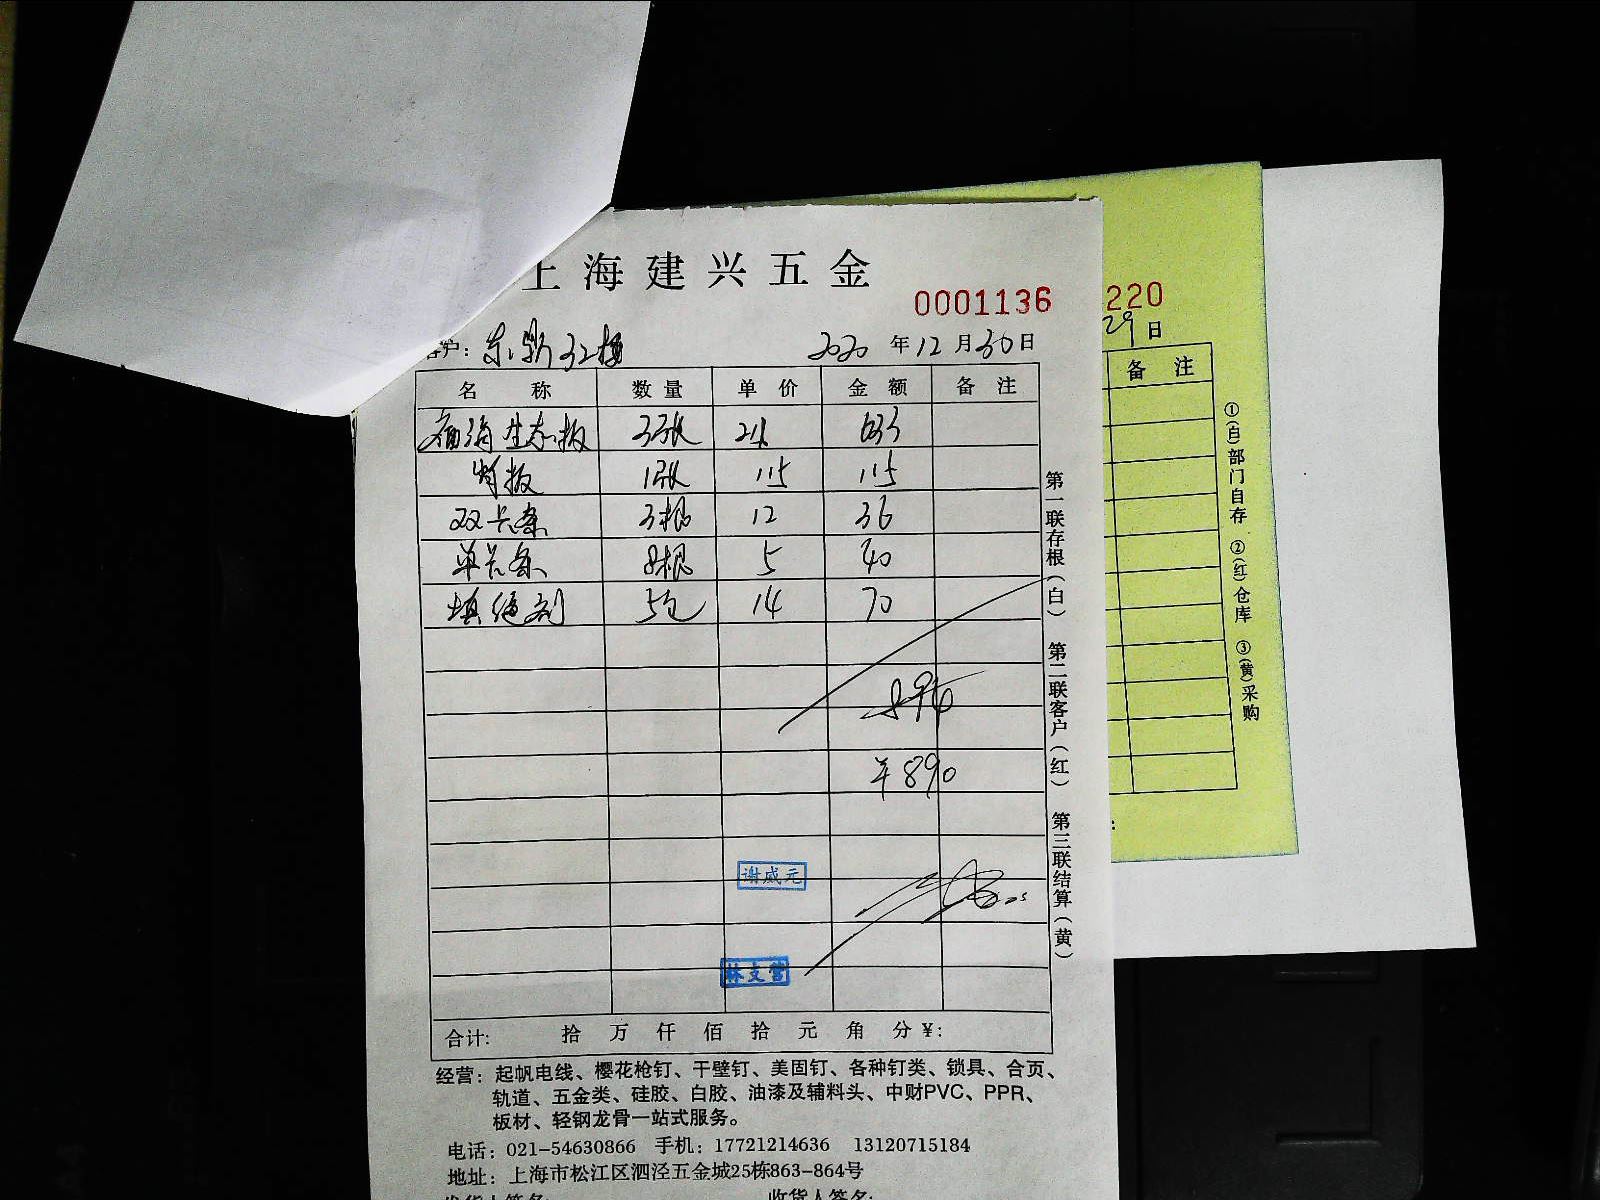 上海建兴五金
0001136
户：东鼎32楼 2020年12月30日
名称 数量 单价 金额 备注
生态板 3张 211 633
背板 1张 115 115
双卡条 3根 12 36
单卡条 8根 5 40
填缝剂 5包 14 70
894
¥890
谢威元
合计: 拾 万 仟 佰 拾 元 角 分 ¥:
经营：起帆电线、樱花枪钉、干壁钉、美固钉、各种钉类、锁具、合页、
轨道、五金类、硅胶、白胶、油漆及辅料头、中财PVC、PPR、
板材、轻钢龙骨一站式服务。
电话：021-54630866 手机：17721214636 13120715184
地址：上海市松江区泗泾五金城25栋863-864号
收货人签名:
第一联存根(白) 第二联客户(红) 第三联结算(黄)
220
29日
备注
①(白)部门自存 ②(红)仓库 ③(黄)采购